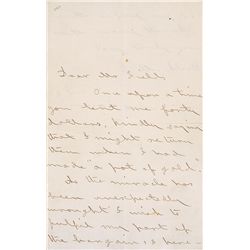 Dear Mr Fields
Once upon a time
you lent me forty
dollars, kindly saying
that I might return
them when I had
made "a pot of gold".
As the miracle has
been unexpectedly
wrought I wish to
fulfil my part of
the bargain, & here